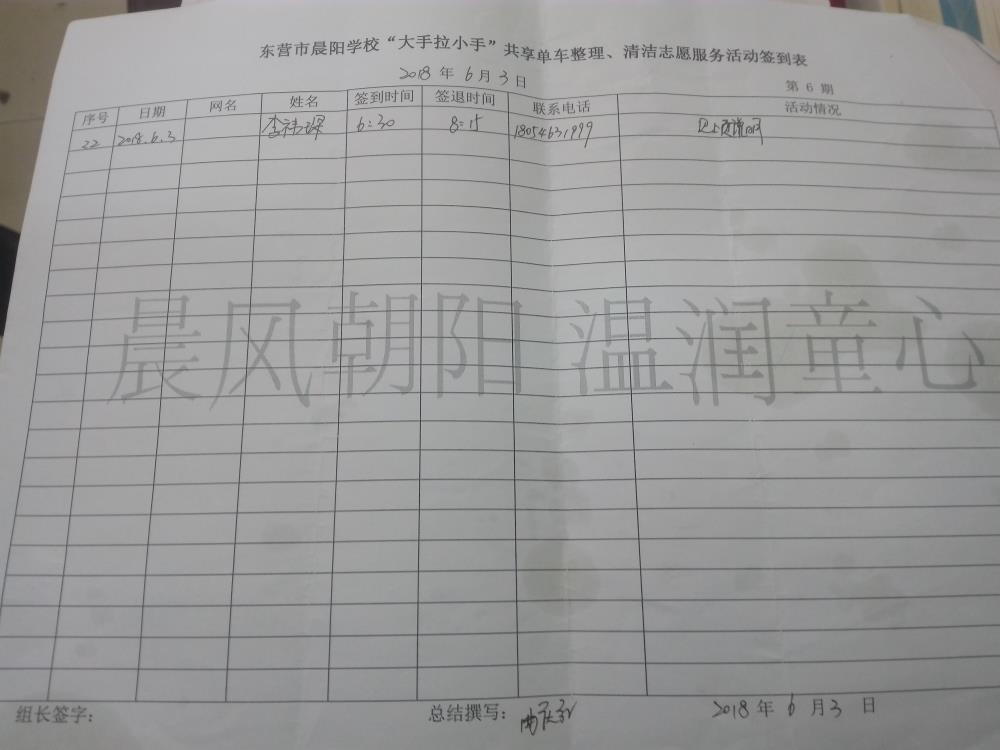 东营市晨阳学校“大手拉小手”共享单车整理、清洁志愿服务活动签到表
2018 年 6 月 3 日
第 6 期
序号 日期 网名 姓名 签到时间 签退时间 联系电话 活动情况
22 2018.6.3 李祎琛 6:30 8:15 18054631999
晨风朝阳 温润童心
组长签字： 总结撰写： 2018 年 6 月 3 日